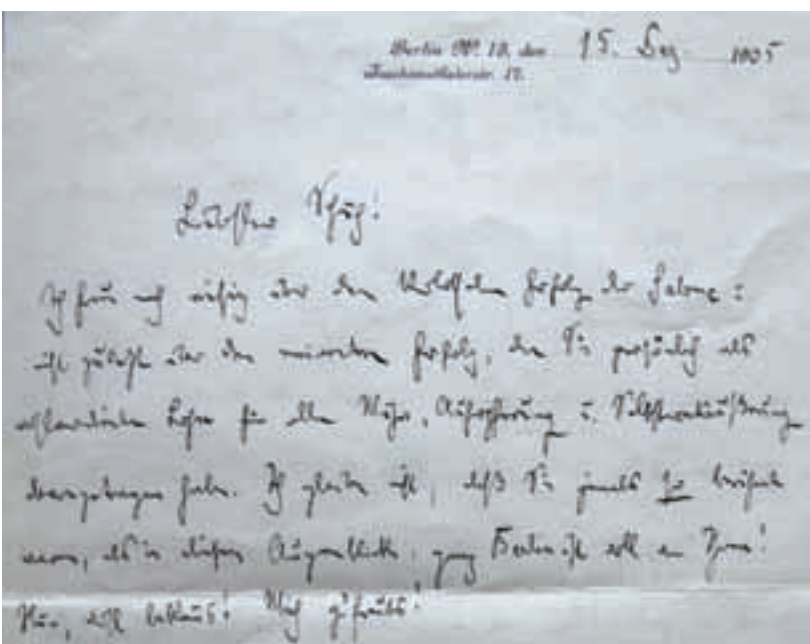 Berlin W. 15, den 15. Dez. 1905
Joachimsthalerstr. 17.
Liebster Schuch!
Ich freue mich riesig über den kolossalen Erfolg der Salome:
nicht zuletzt über den Erfolg, den Sie persönlich als
wohlverdienten Lohn für alle Mühe, Aufopferung u. Selbstentäußerung
davongetragen haben. Ich glaube nicht, daß Sie jemals so berühmt
waren, als in diesem Augenblick; ganz Berlin ist voll von Ihnen!
Mich g'freuts!